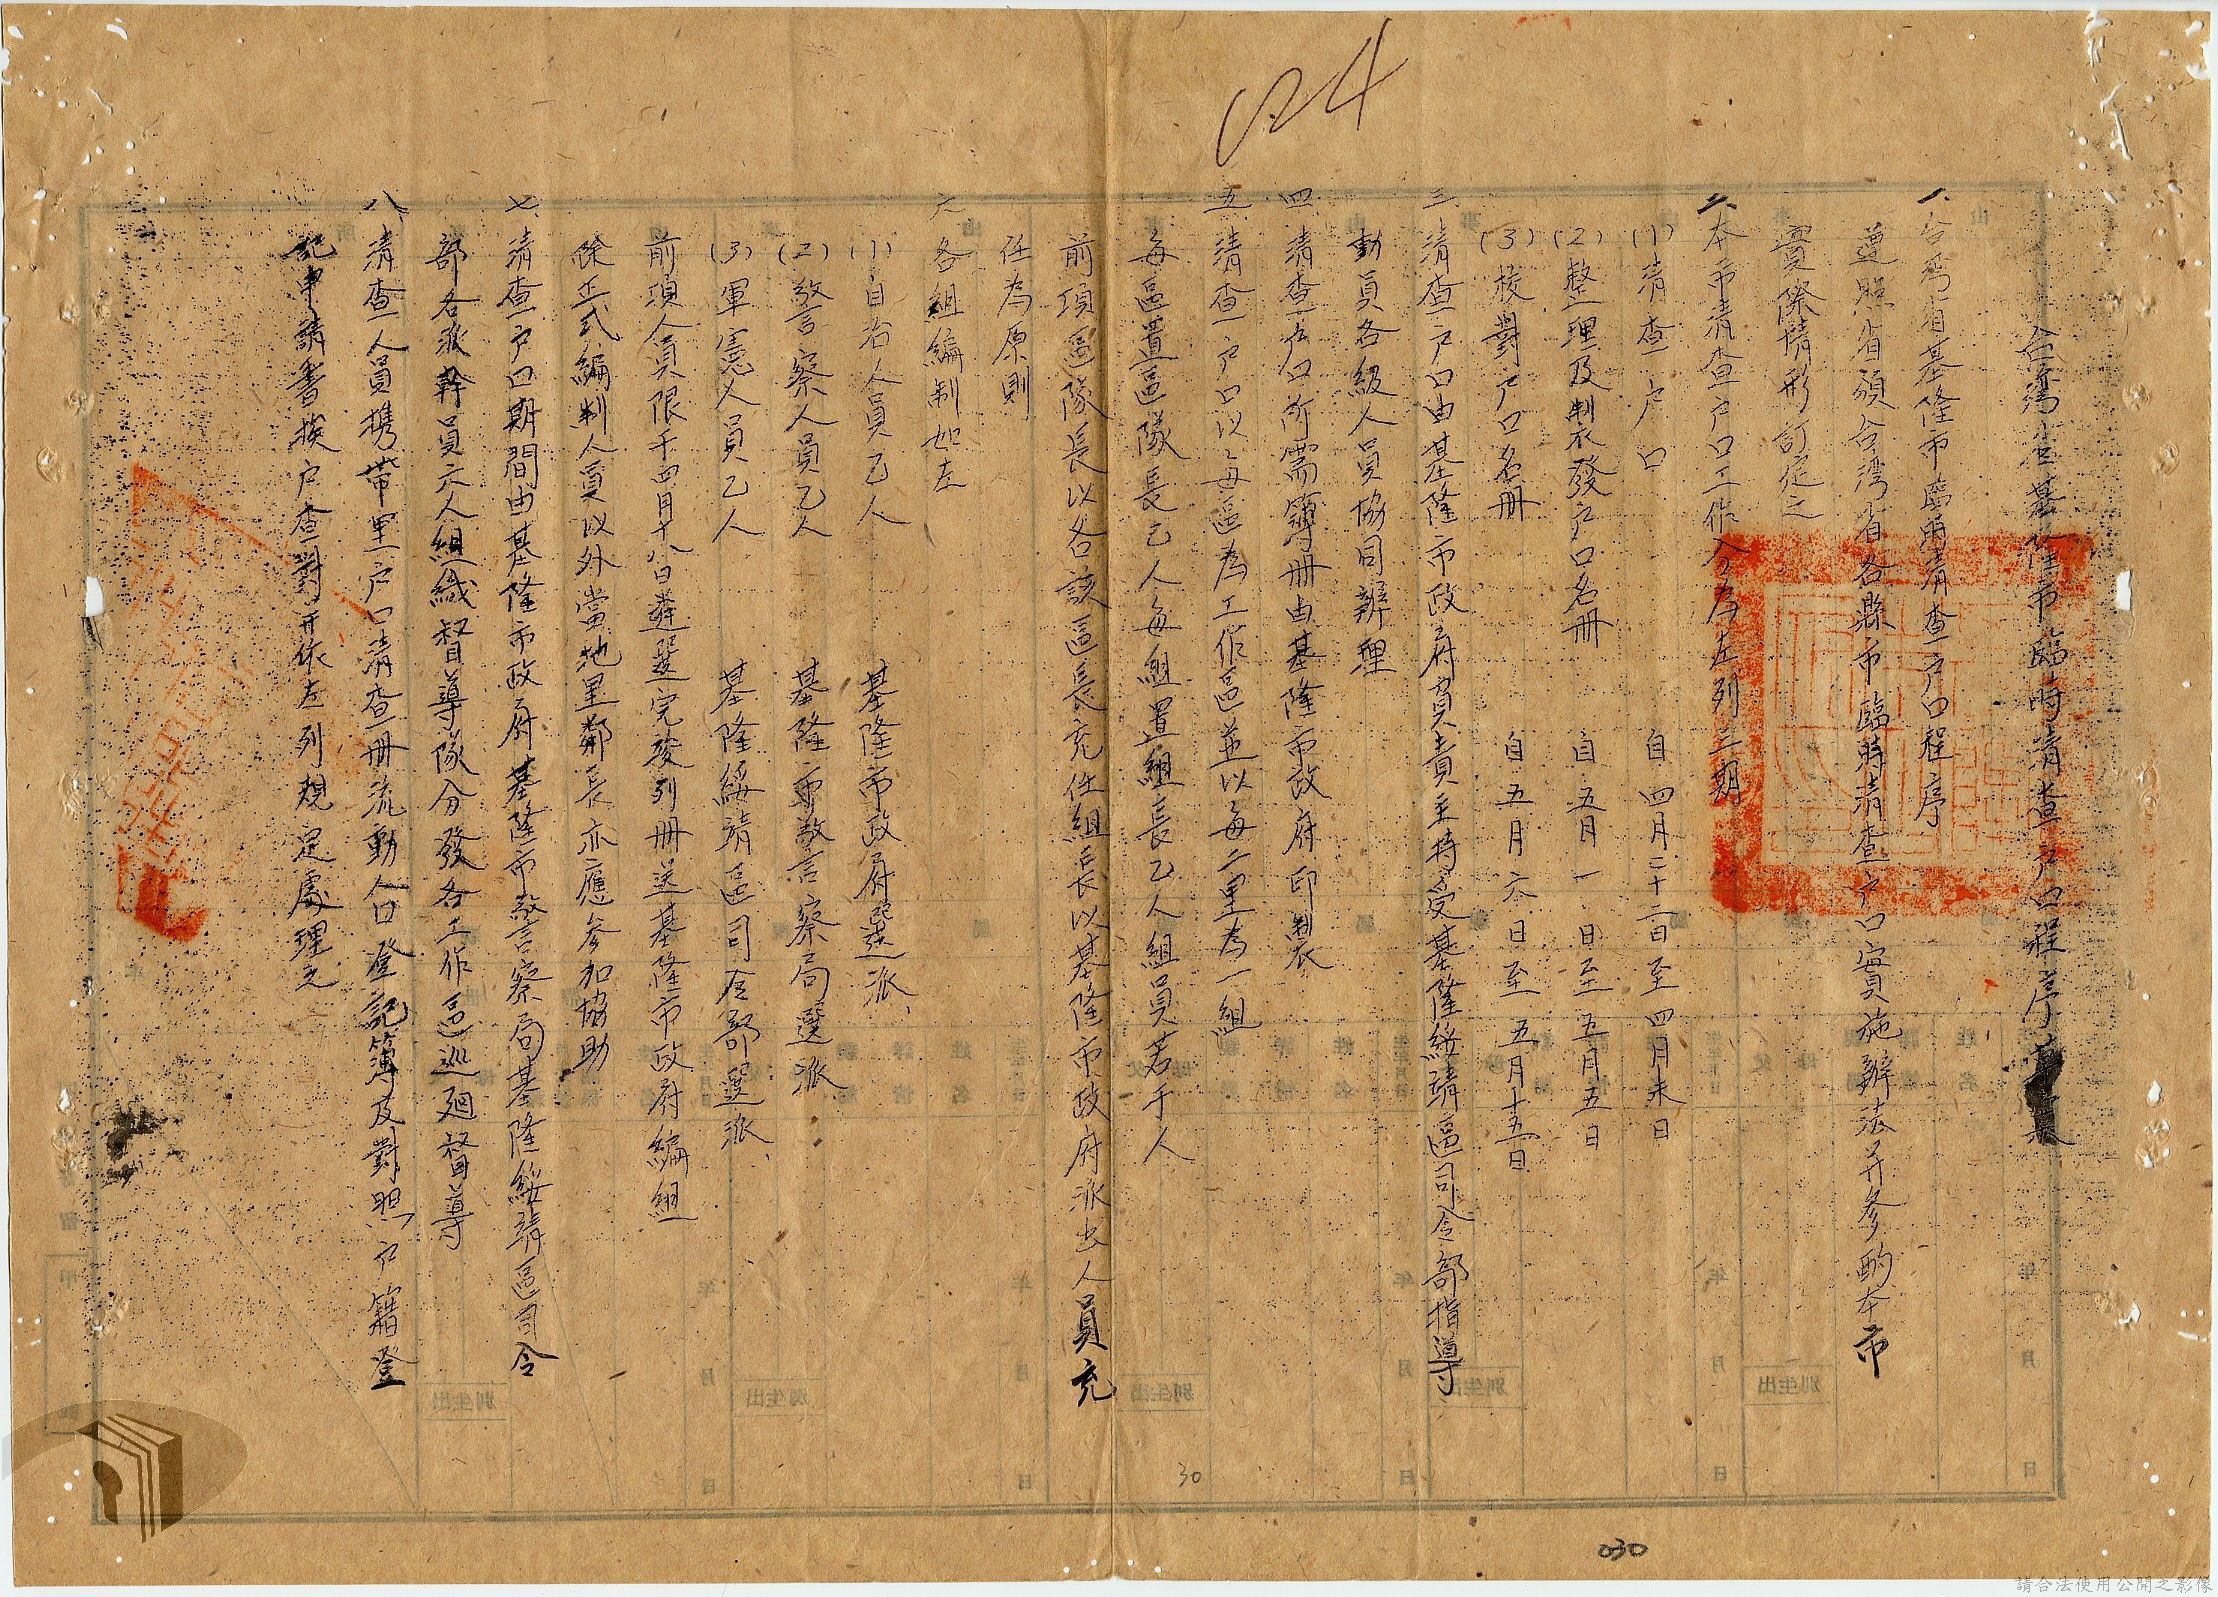 024
台灣省基隆市臨時清查户口程序草案
一、台灣省基隆市臨時清查户口程序
遵照省頒台湾省各縣市臨時清查户口實施辦法并參酌本市
實際情形訂定之
二、本市清查户口工作分為左列三期
(1)清查户口 自四月二十二日至四月末日
(2)整理及製發户口名冊 自五月一日至五月五日
(3)校對户口名冊 自五月六日至五月十五日
三、清查户口由基隆市政府負責主持受基隆綏靖區司令部指導
動員各級人員協同辦理
四、清查户口所需簿冊由基隆市政府印製
五、清查户口以每區為工作區並以每二里為一組
每區置區隊長乙人每組置組長乙人組員若干人
前項區隊長以各該區長充任組長以基隆市政府派出人員充
任為原則
六、各組編制如左
(1)自治人員乙人 基隆市政府選派、
(2)警察人員乙人 基隆市警察局選派
(3)軍憲人員乙人 基隆綏靖區司令部選派、
前項人員限于四月十八日遴選完竣列冊送基隆市政府編組
除正式編制人員以外當地里鄰長亦應參加協助
七、清查户口期間由基隆市政府基隆市警察局基隆綏靖區司令
部各派幹員六人組織督導隊分發各工作區巡廻督導
八、清查人員携帶里户口清查冊流動人口登記簿及對照户籍登
記申請書挨户查對并依左列規定處理之
30
030
請合法使用公開之影像